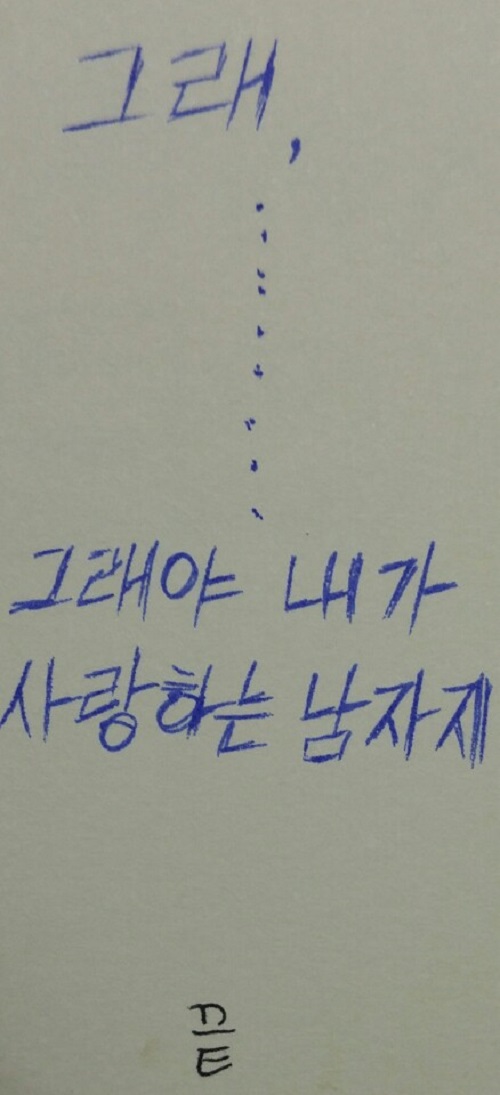 그래,
.........
그래야 내가
사랑하는 남자제
끝